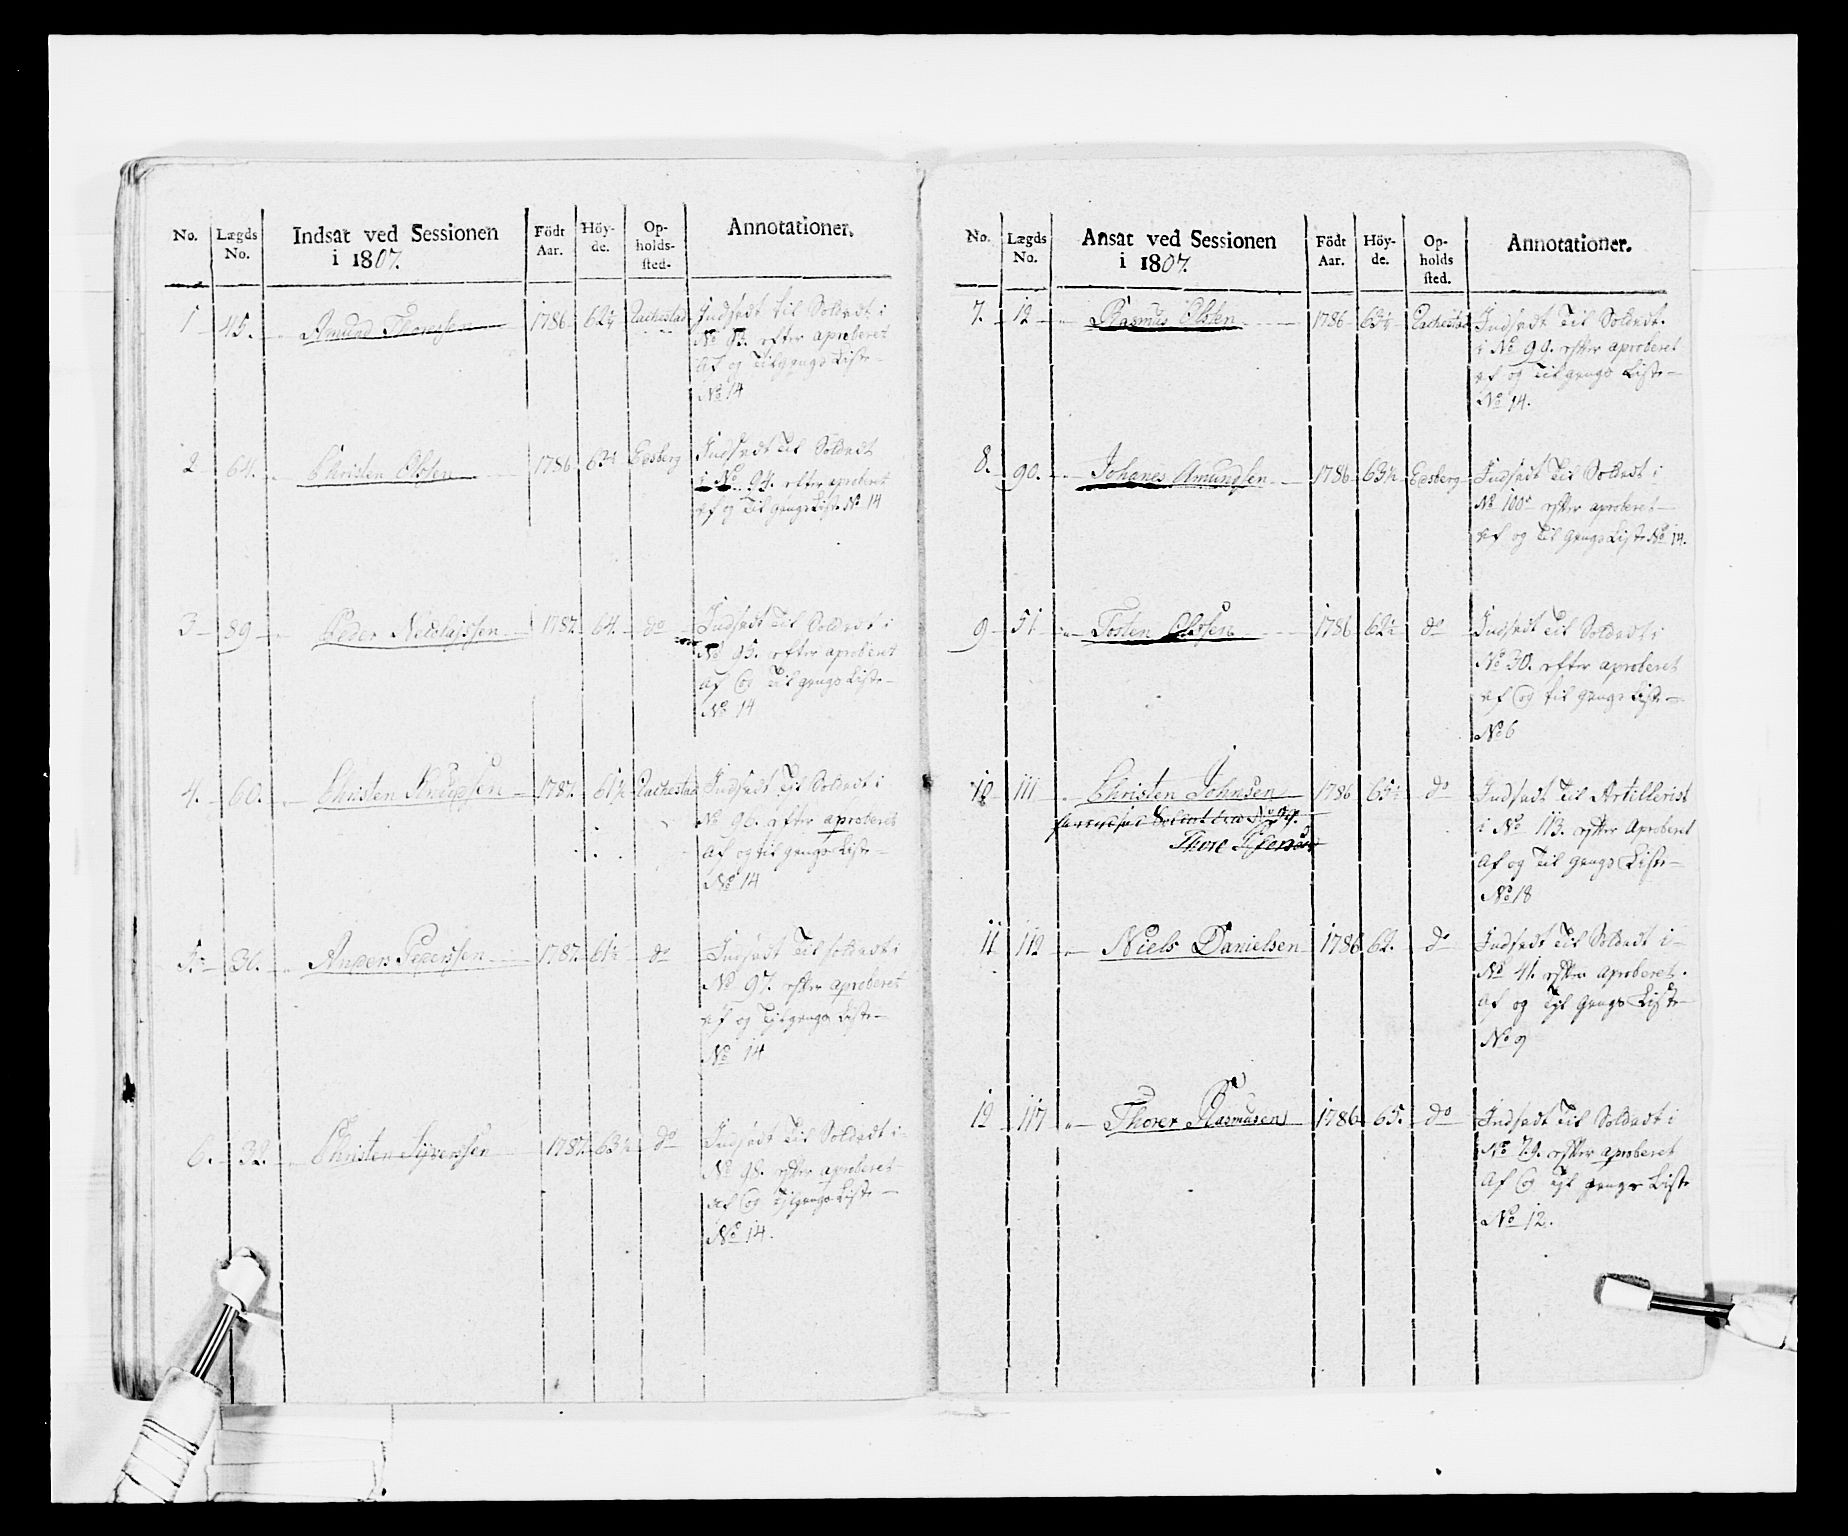 No. Lægds No. Indsat ved Sessionen i 1807. Födt Aar. Höy-de. Op-holds-sted. Annotationer.
1 45. Amund 1786 62½ Rachestad Indsadt til Soldadt i
No 93. efter aproberet
Af og Tilgangs Liste
No 14
2 64. Christen Olssen 1786 63½ Eedsberg Indsadt Til Soldadt
i No 94. efter aproberet
Af og Til gangs Liste No 14
3 89 Peder Nicolajssen 1787. 64. do Indsadt Til Soldadt i
No 95. efter aproberet
Af Og Til gangs Liste
No 14
4. 60. Christen 1787. 61½ Rachestad Indsadt Til Soldadt i
No 96. efter aproberet
Af og til gangs Liste
No 14
5. 30. Anders Pederssen 1787. 61½ do Indsadt Til soldadt i
No 97. efter aproberet
Af og Til gangs Liste
No 14
6. 32. Christen Syverssen 1787. 63½ do Indsadt Til Soldadt i
No 98. efter aproberet
Af Og Tilgangs Liste
No 14.
No. Lægds No. Ansat ved Sessionen i 1807. Födt Aar. Höy-de. Op-holds sted. Annotationer.
7. 12 Rasmus Olsten 1786 63½ Rachestad Indsadt Til Soldadt.
i No 99. efter aproberet
Af og Til gangs Liste
No 14.
8. 90. Johanes Amundsen 1786 63½ Eedsberg Indsadt Til Soldadt i
No 100 efter aproberet
Af og Til gangs Liste No 14.
9 51 Tosten Olssen 1786 62½ do Indsadt Til Soldadt i
No 30. efter aproberet
Af Og til gangs Liste
No 6
10 111 Christen Johnsen 1786 65½ do Indsadt Til Artillerist
No 99.
i No 113. efter Aproberet
Thore
Af og Til gangs Liste
No 18
11 112 Niels Danielsen 1786 62. do Indsadt Til Soldadt i
No 41. efter aproberet.
Af og Til gangs Liste
No 9
12 117 Thorer Rasmusen 1786 65. do Indsadt Til Soldadt i
No 79. efter aproberet
Af Og Til gangs Liste
No 12.